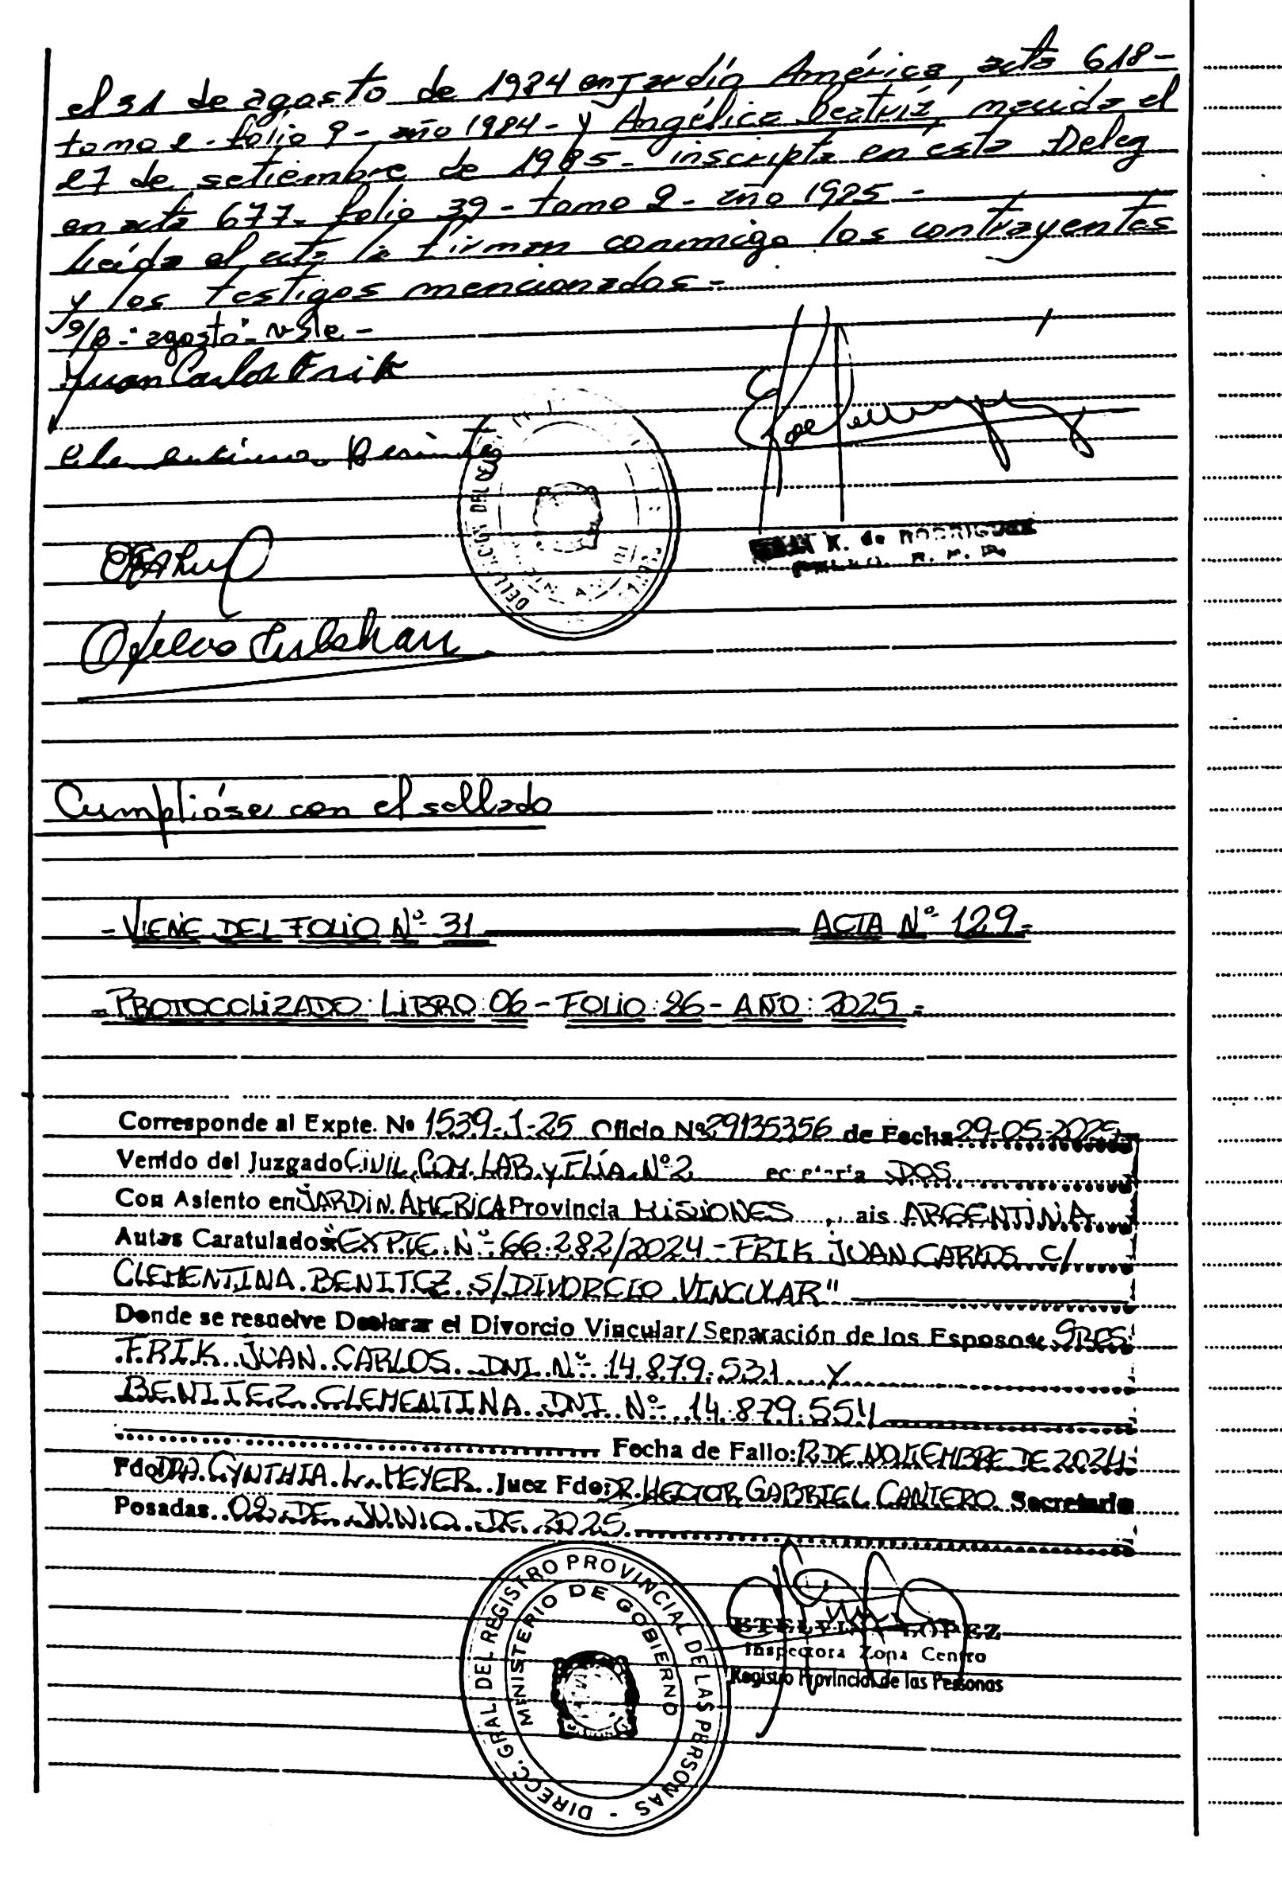 el 31 de agosto de 1984 en Jardín América, acta 618-
tomo 2 - folio 9 - año 1984 - y Angélica Beatriz, nacida el
27 de setiembre de 1985 - inscripta en esta Deleg
en acta 677 - folio 39 - tomo 2 - año 1985 -
Leída el acta la firman conmigo los contrayentes
y los testigos mencionados -
S/B - "agosto" - vale -
Juan Carlos Frik
Clementina Benitez
K. de RODRIGUEZ
Cumplióse con el sellado
- VIENE DEL FOLIO Nº 31 ACTA Nº 129 -
- PROTOCOLIZADO: LIBRO: 06 - FOLIO: 86 - AÑO: 2025 -
Corresponde al Expte. Nº 1539-J-25 Oficio Nº 29135356 de Fecha 29-05-2025
Venido del Juzgado CIVIL, COM. LAB. y FLIA. Nº 2 ecretaría DOS
Con Asiento en JARDIN AMERICA Provincia MISIONES ais ARGENTINA
Autos Caratulados "EXPTE. Nº 66.282/2024 - FRIK JUAN CARLOS C/
CLEMENTINA BENITEZ S/ DIVORCIO VINCULAR"
Donde se resuelve Declarar el Divorcio Vincular/Separación de los Esposos: SRES.
FRIK JUAN CARLOS DNI Nº 14.879.531 Y
BENITEZ CLEMENTINA DNI Nº 14.879.554
Fecha de Fallo: 12 DE NOVIEMBRE DE 2024
Fdo: DRA. CYNTHIA L. MEYER Juez Fdo: DR. HECTOR GABRIEL CANTERO Secretario
Posadas 02 DE JUNIO DE 2025
DIRECC. GRAL DEL REGISTRO PROVINCIAL DE LAS PERSONAS
MINISTERIO DE GOBIERNO
ETELVINA LOPEZ
Inspectora Zona Centro
Registro Provincial de las Personas